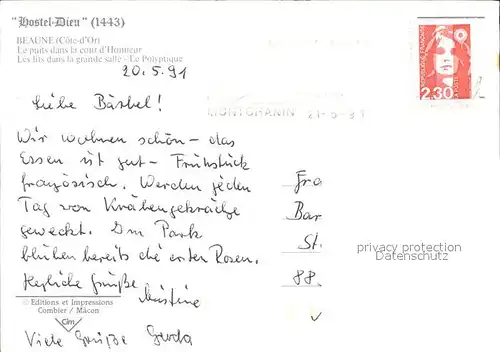 "Hostel-Dieu" (1443)
BEAUNE (Côte-d'Or)
Le puits dans la cour d'Honneur
Les lits dans la grande salle - Le Polyptique
20.5.91
RÉPUBLIQUE FRANÇAISE
2,30
LA POSTE
21-5-91
Liebe Bärbel!
Wir wohnen schön - das
Essen ist gut - Frühstück
französisch. Werden jeden
Tag von Krähengekrächze
geweckt. Im Park
blühen bereits die ersten Rosen.
Herzliche Grüße
Christine
Viele Grüße Gerda
Fra
Bar
St.
88.
privacy protection
Datenschutz
© Editions et Impressions
Combier / Mâcon
Cim